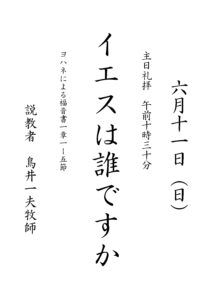 六月十一日（日）
主日礼拝　午前十時三十分
イエスは誰ですか
ヨハネによる福音書一章一ー五節
説教者　鳥井一夫牧師